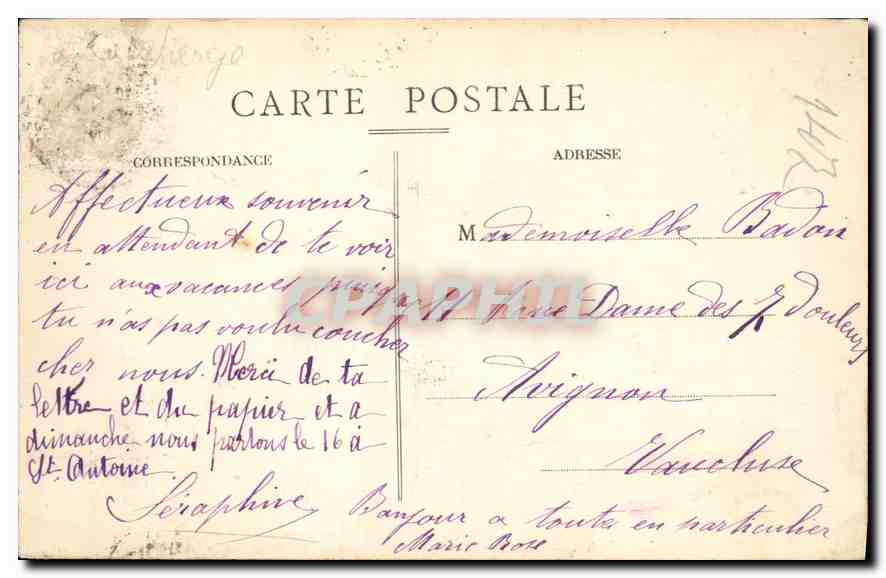 CARTE POSTALE
CORRESPONDANCE
ADRESSE
Affectueux souvenir
en attendant de te voir
ici aux vacances puisque
tu n'as pas voulu coucher
chez nous. Merci de ta
lettre et du papier et a
dimanche nous partons le 16 à
St. Antoine
Séraphine
Mademoiselle Badoin
11 rue Dame des 7 douleurs
Avignon
Vaucluse
Bonjour a toutes en particulier
Marie Rose
142
CPAPHIL